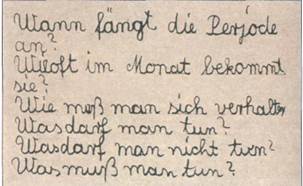 Wann fängt die Perjode
an?
Wieoft im Monat bekommt
sie?
Wie meß man sich verhalten
Wasdarf man tun?
Wasdarf man nicht turn?
Was muß man tun?